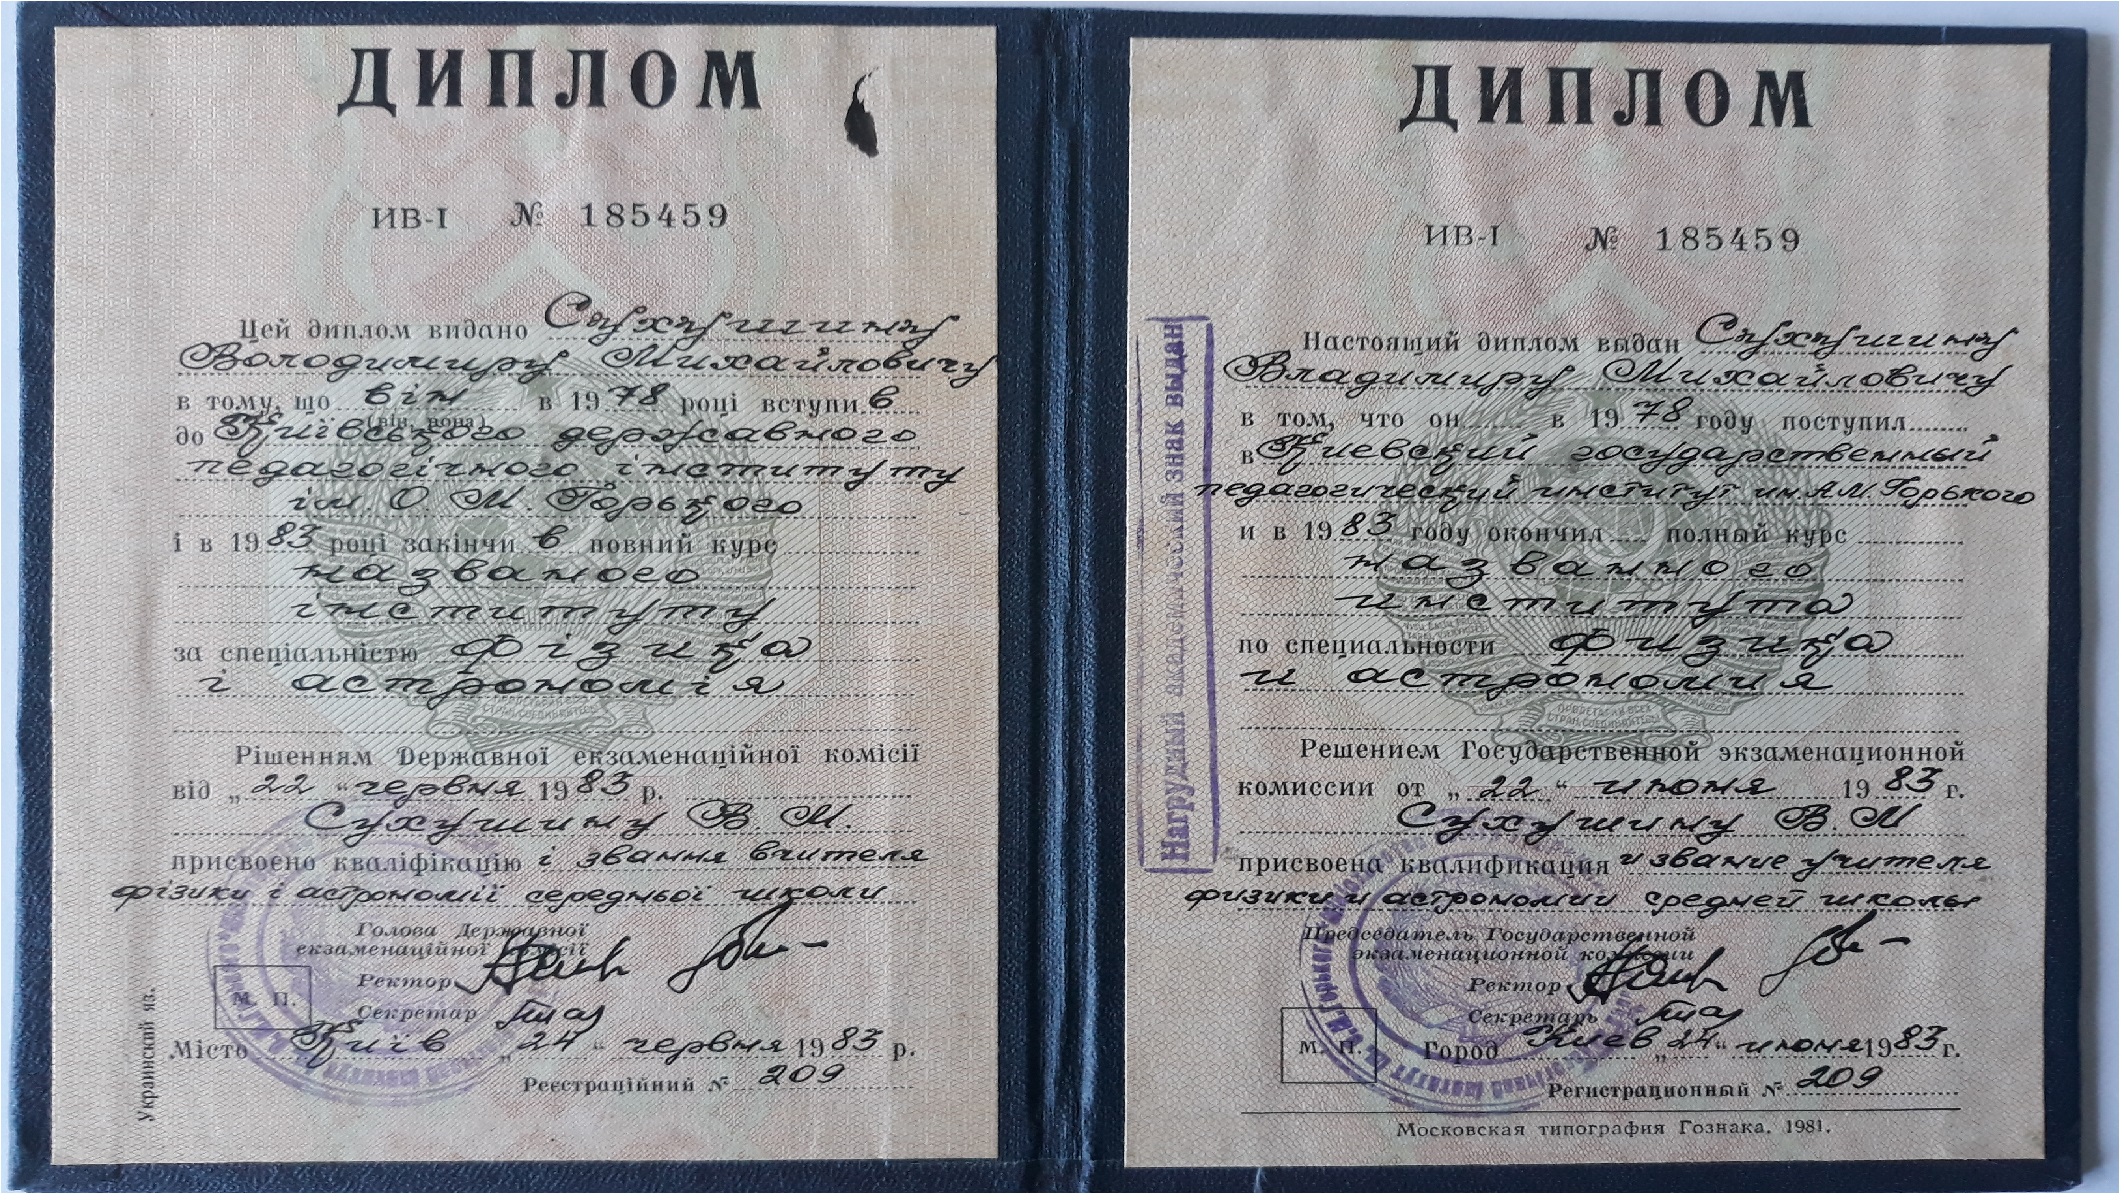 ДИПЛОМ
ИВ-I № 185459
Цей диплом видано Сухушину
Володимиру Михайловичу
в тому, що він в 1978 році вступив
(він, вона)
до Київського державного
педагогічного інституту
ім. О. М. Горького
і в 1983 році закінчив повний курс
названого
інституту
за спеціальністю фізика
і астрономія
Рішенням Державної екзаменаційної комісії
від „22“ червня 1983 р.
Сухушину В. М.
присвоєно кваліфікацію і звання вчителя
фізики і астрономії середньої школи
Голова Державної
екзаменаційної комісії
Ректор
Секретар
М. П.
Місто Київ „24“ червня 1983 р.
Реєстраційний № 209
Украинский яз.
ДИПЛОМ
ИВ-I № 185459
Настоящий диплом выдан Сухушину
Владимиру Михайловичу
в том, что он в 1978 году поступил
в Киевский государственный
педагогический институт им. А.М. Горького
и в 1983 году окончил полный курс
названного
института
по специальности физика
и астрономия
Решением Государственной экзаменационной
комиссии от „22“ июня 1983 г.
Сухушину В. М
присвоена квалификация и звание учителя
физики и астрономии средней школы
Председатель Государственной
экзаменационной комиссии
Ректор
Секретарь
М. П.
Город Киев „24“ июня 1983 г.
Регистрационный № 209
Московская типография Гознака. 1981.
Нагрудный академический знак выдан